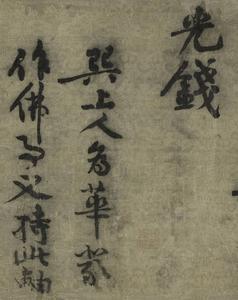 光錢
巽上人為華
作佛事持此軸